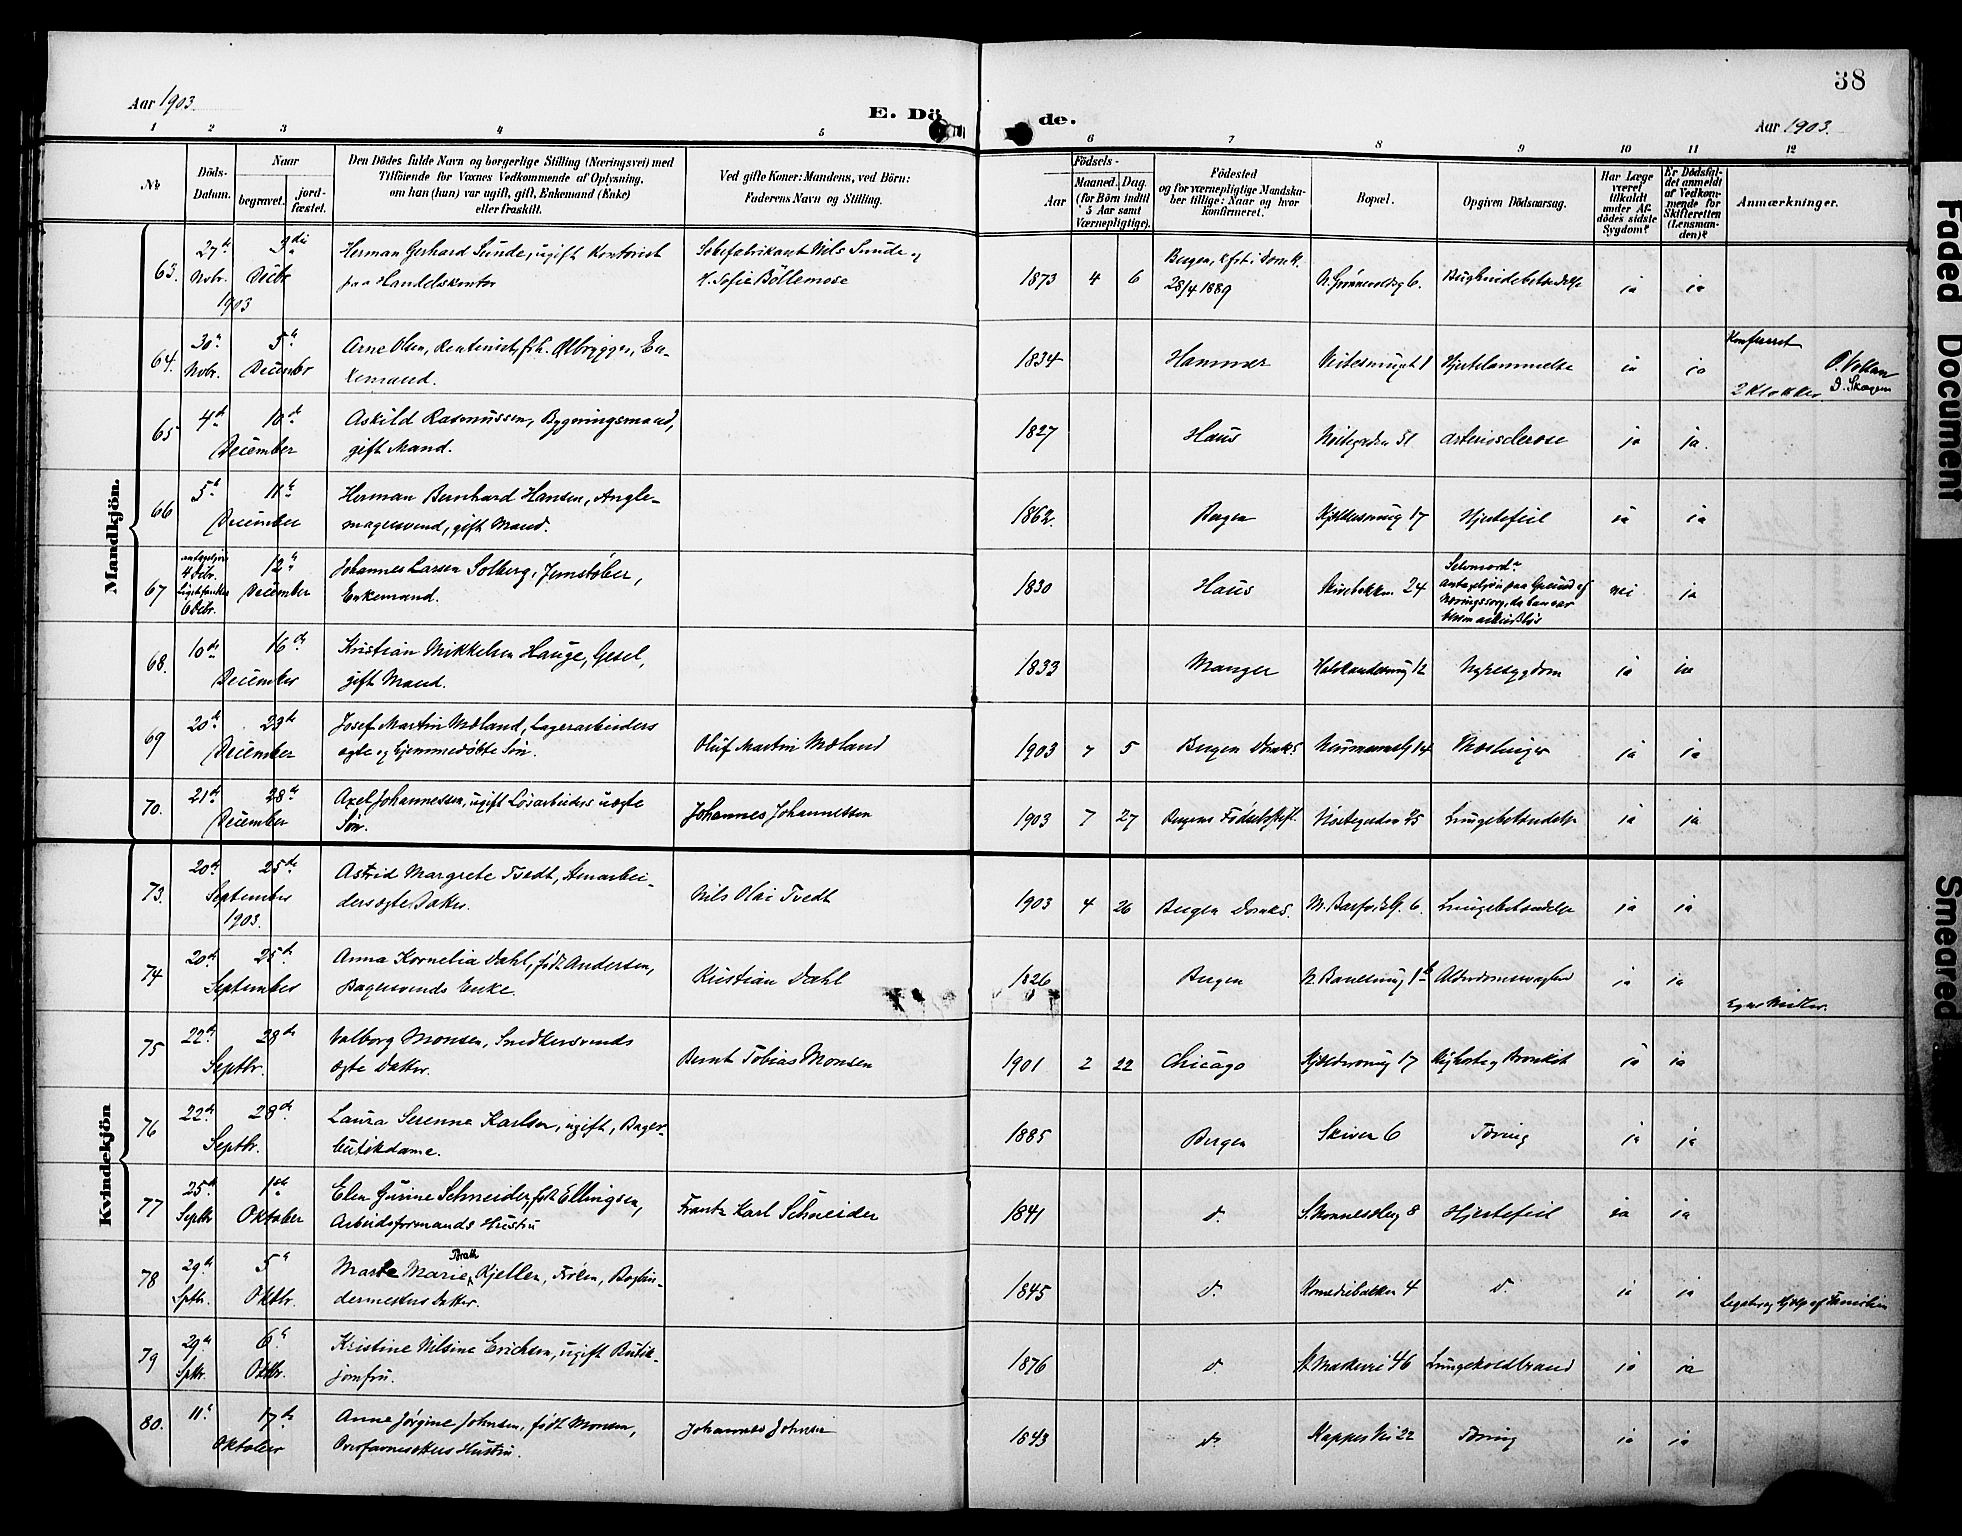 38
Aar 1903.
E. Dö de.
Aar 1903.
1 2 3 4 5 6 7 8 9 10 11 12
No
Döds-Datum.
Naar
begravet.
jord-fæstet.
Den Dödes fulde Navn og borgerlige Stilling (Næringsvei) med
Tilföiende for Voxnes Vedkommende af Oplysning,
om han (hun) var ugift, gift, Enkemand (Enke)
eller fraskilt.
Ved gifte Koner: Mandens, ved Börn:
Faderens Navn og Stilling.
Födsels-
Aar
Maaned. Dag.
(for Börn indtil
5 Aar samt
Værnepligtige).
Födested
og for værnepligtige Mandska-
ber tillige: Naar og hvor
konfirmeret.
Bopæl.
Opgiven Dödsaarsag.
Har Læge
været
tilkaldt
under Af-
dödes sidste
Sygdom?
Er Dödsfal-
det anmeldt
af Vedkom-
mende for
Skifteretten
(Lensman-
den)?
Anmærkninger.
Mandkjön.
63. 27de Novbr. 1903 3die Decbr Herman Gerhard Sunde, ugift Kontorist
paa Handelskontor
Sæbefabrikant Nils Sunde og
H. Sofie Böllemose
1873 4 6 Bergen, kfrt i Domk.
28/4 1889
6. Bughindebetændelse ja ja
64. 30te Novbr. 5te December Arne Olsen, Rentenist, fh. Ølbrygger, En-
kemand.
1834 Hammer Hjertelammelse ja ja Konfereret
2 Klokker.
65 4de 10de December Askild Rasmussen, Bygningsmand,
gift Mand.
1827 Haus Nöstegaden 51 Arteriosclerose ja ja.
66 5te 11te December Herman Bernhard Hansen, Angle-
magersvend, gift Mand.
1862. Bergen 17 Hjertefeil ja ja
67 antagelig 4 Decbr. Liget fundet 6 Decbr. 12te December Johannes Larsen Solberg, Jernstøber,
Enkemand.
1830 Haus Skivebakken 24 Selvmord
antagelig paa Grund af
Næringssorg, da han var
bleven arbeidsløs
nei ja
68. 10de 16de December Kristian Mikkelsen Hauge, Gesel,
gift Mand.
1833 Manger 12 Nyresygdom ja ja
69 20de 23de December Josef Martin Mæland, Lagerarbeiders
ægte og hjemmedøbte Søn.
Oluf Martin Mæland
1903 7 5 Bergen Domks. 14 Mæslinger ja ja
70. 21de 28de December Axel Johannessen, ugift Løsarbeiders uægte
Søn.
Johannes Johannessen
1903 7 27 Bergens Fødselsstift. Nöstegaden 45 Lungebetændelse ja ja
Kvindekjön
73. 20de 25de September 1903. Astrid Margrete Tvedt, Stenarbei-
ders ægte Datter.
Nils Olai Tvedt
1903 4 26 Bergen Domks. 6. Lungebetændelse ja ja
74 20de 25de September Anna Kornelia Dahl, født Andersen,
Bagersvends Enke.
Kristian Dahl
1826 Bergen Alderdomssvaghed ja ja Egne Midler.
75 22de 28de Septbr. Valborg Monsen, Snedkersvends
ægte Datter.
Bernt Tobias Monsen
1901 2 22 Chicago 17 Kighoste og Bronkit ja ja
76 22de 28de Septbr. Laura Serenne Karlsen, ugift, Bager-
butikdame.
1885 Bergen Skiven 6 Tæring ja ja
77 25de Septbr 1ste Oktober Elen Gurine Schneider, født Ellingsen,
Arbeidsformands Hustru
Frantz Karl Schneider
1841 d. 8 Hjertefeil ja ja
78 29de Sptbr. 5te Oktbr. Marte Marie Brath Kjeller, Frøken, Bogbin-
dermesters Datter.
1845 d. Komediebakken 4 d. ja ja Legater og Hjælp af Familien
79 29de Sptbr. 6te Oktbr. Kristine Nilsine Erichsen, ugift Butik-
jomfru.
1876 d. St. Markevei 46 Lungekoldbrand ja ja
80. 11te 17de Oktober Anne Jörgine Johnsen, født Monsen,
Hustru.
Johannes Johnsen
1843 d. 22 Tæring ja ja
Faded Document
Smeared